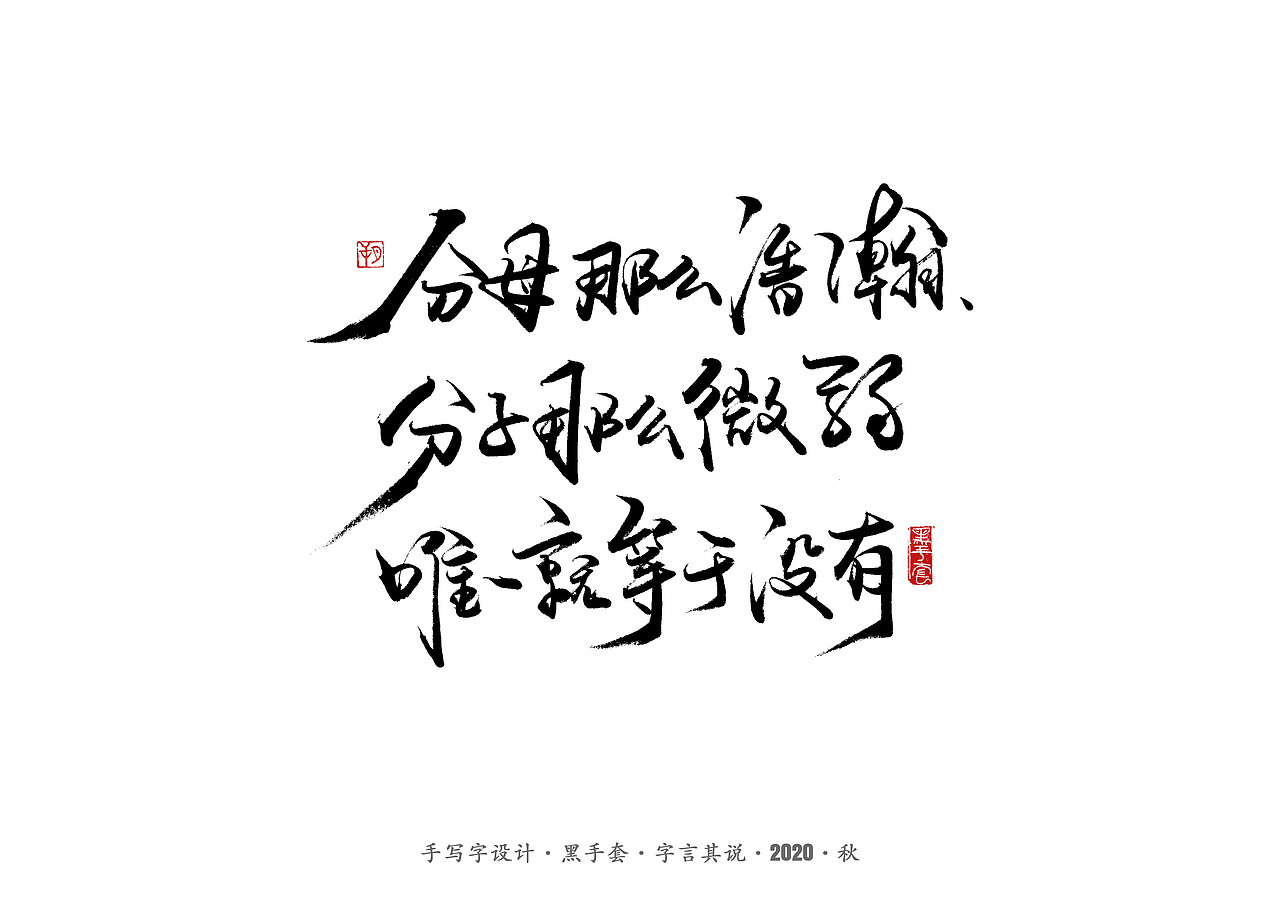 分母那么浩瀚、
分子那么微弱
唯一就等于没有
黑手套
手写字设计·黑手套·字言其说·2020·秋